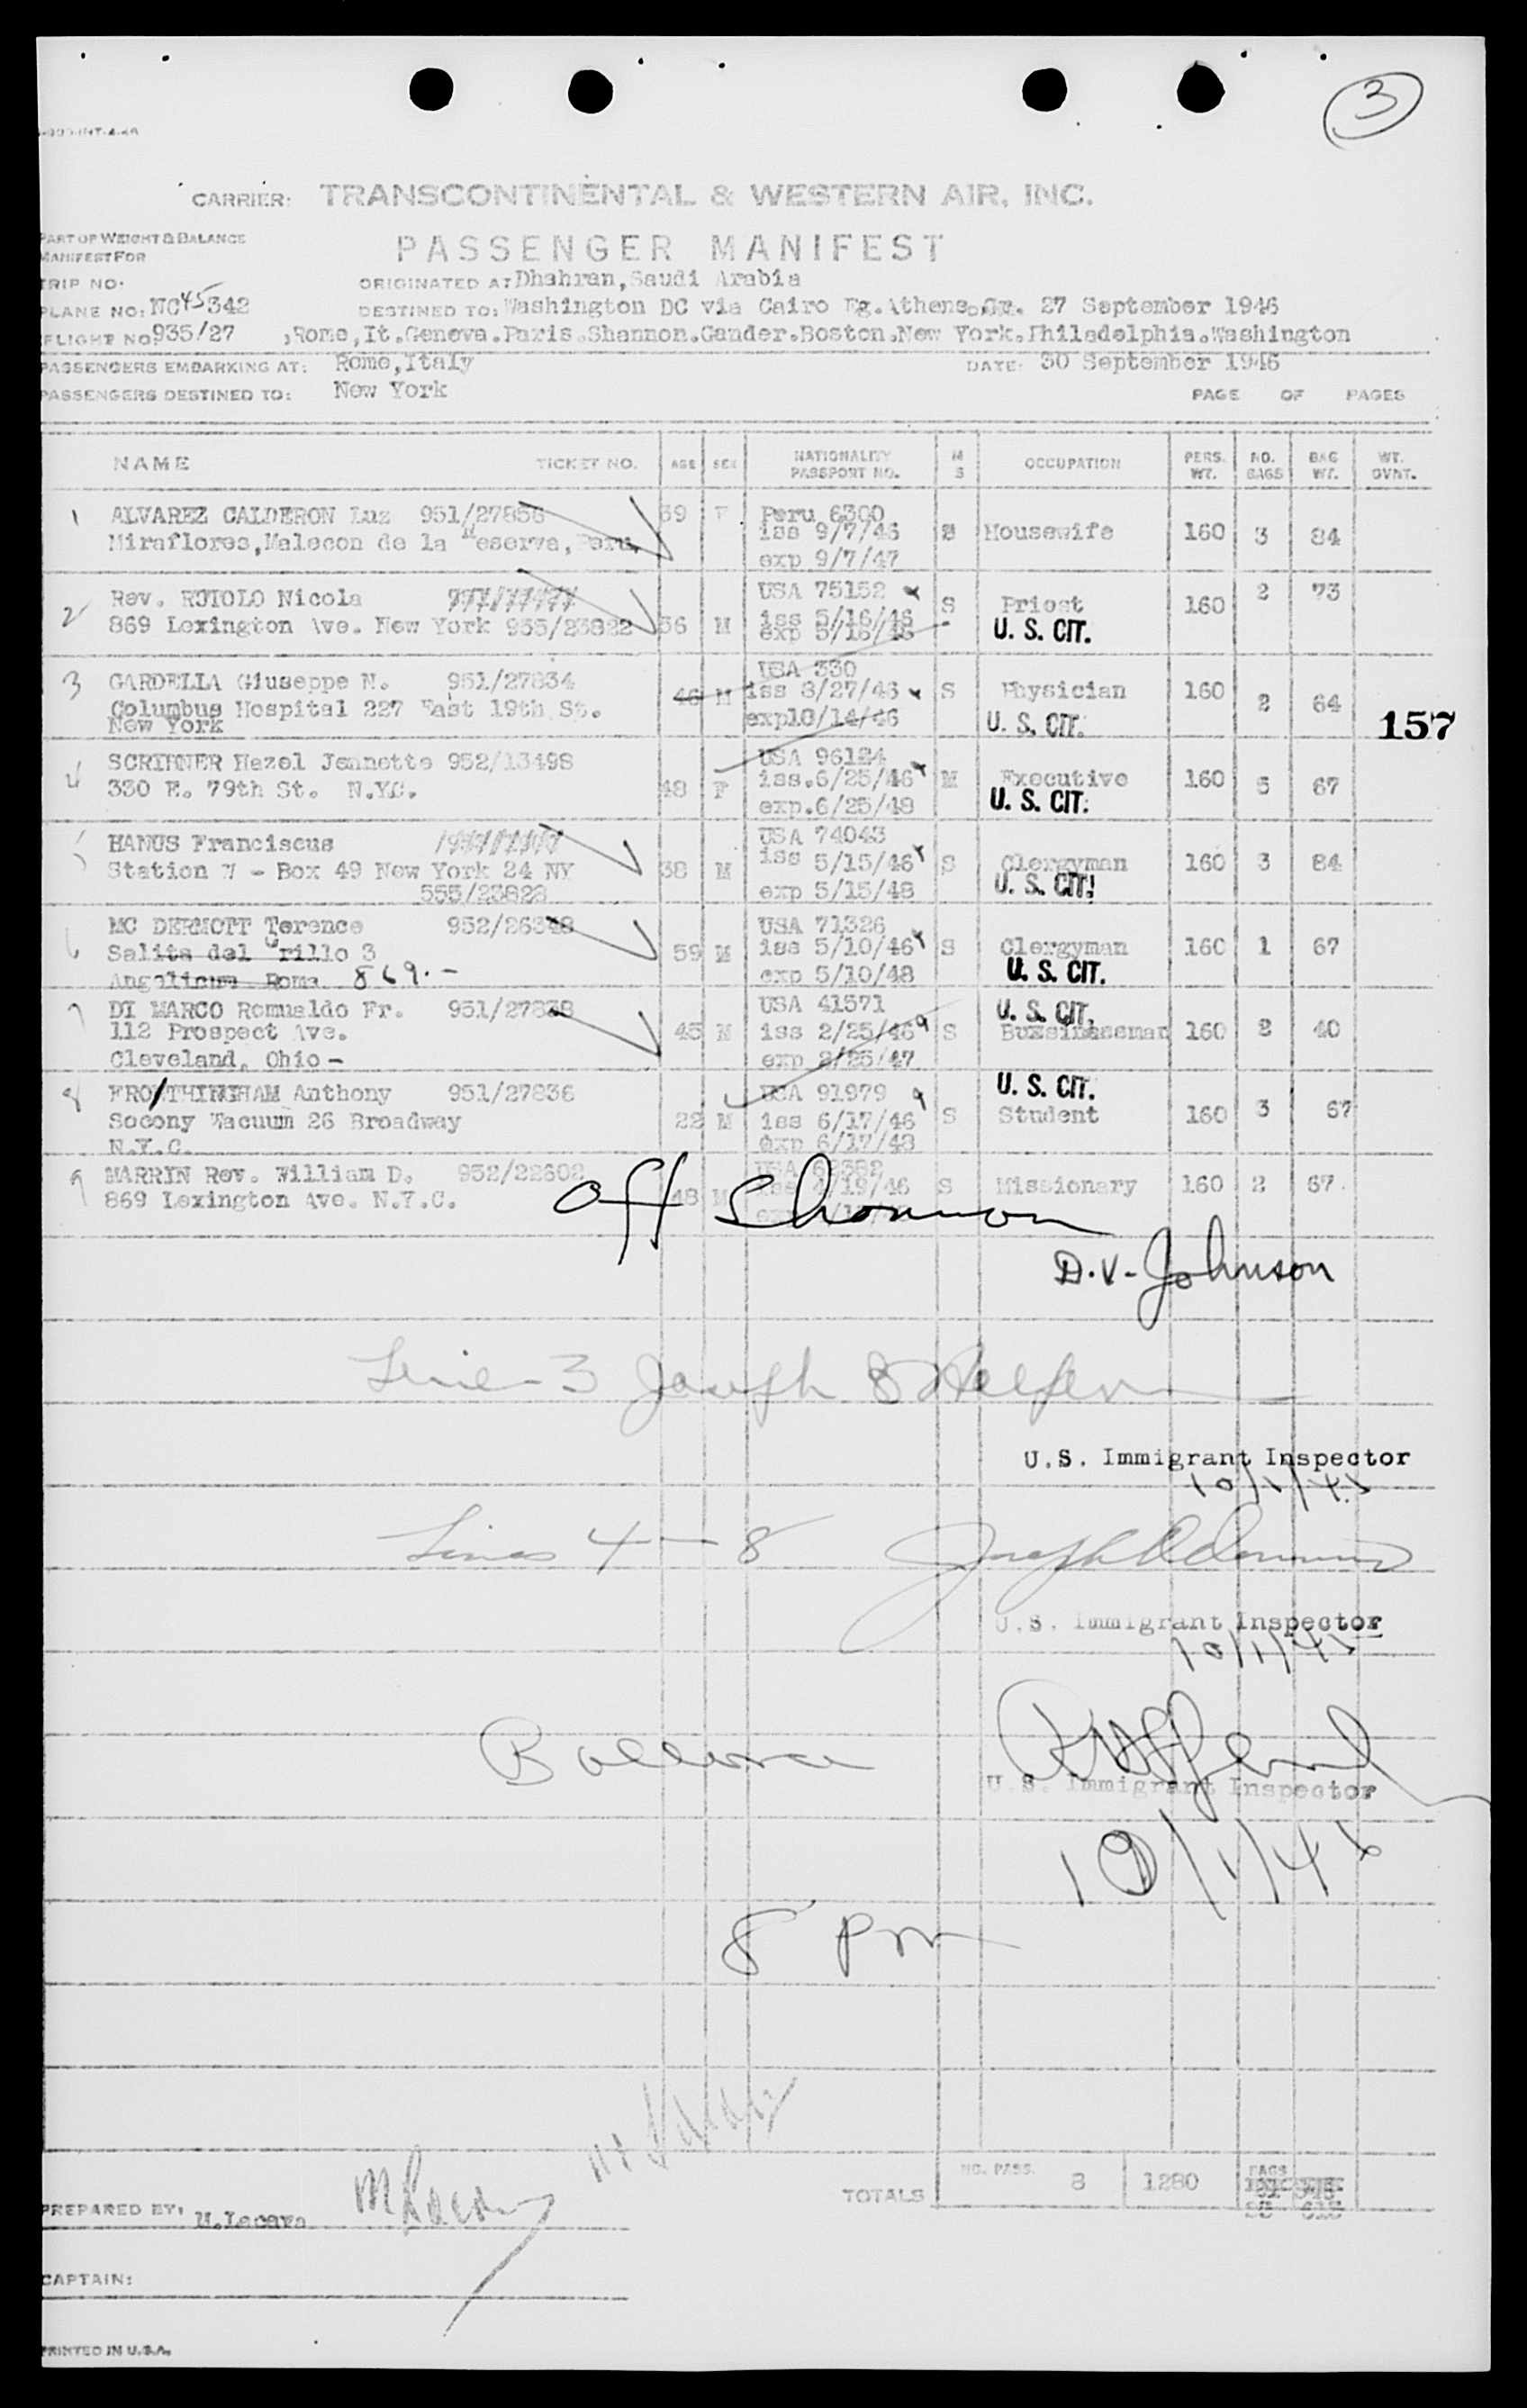 3
CARRIER: TRANSCONTINENTAL & WESTERN AIR, INC.
PART OF WEIGHT & BALANCE
MANIFEST FOR
PASSENGER MANIFEST
TRIP NO.
ORIGINATED AT Dhahran, Saudi Arabia
PLANE NO: NC45342
DESTINED TO: Washington DC via Cairo Eg. Athens, Gr. 27 September 1946
FLIGHT NO 935/27 ,Rome, It.Geneva.Paris.Shannon.Gander.Boston.New York.Philadelphia.Washington
PASSENGERS EMBARKING AT: Rome, Italy DATE: 30 September 1946
PASSENGERS DESTINED TO: New York PAGE OF PAGES
NAME TICKET NO. AGE SEX NATIONALITY PASSPORT NO. M S OCCUPATION PERS. WT. NO. BAGS BAG WT. WT. OVNT.
1 ALVAREZ CALDERON Luz 951/27856 39 F Peru 6300
Miraflores, Malecon de la Reserva, Peru. iss 9/7/46 Housewife 160 3 84
exp 9/7/47
2 Rev. ROTOLO Nicola USA 75152 S Priest 160 2 73
869 Lexington Ave. New York 955/23822 36 M iss 5/16/46 U. S. CIT.
exp 5/16/48
3 GARDELLA Giuseppe N. 951/27834 46 M USA 330
Columbus Hospital 227 East 19th St. iss 8/27/46 S Physician 160 2 64
New York exp10/14/46 U. S. CIT.
157
4 SCRIBNER Hazel Jeannette 952/13498 USA 96124
330 E. 79th St. N.Y.C. 48 F iss.6/25/46 M Executive 160 5 67
exp.6/25/48 U. S. CIT.
5 HANUS Franciscus USA 74043
Station W - Box 49 New York 24 NY 38 M iss 5/15/46 S Clergyman 160 3 84
555/23828 exp 5/15/48 U. S. CIT!
6 MC DERMOTT Terence 952/26348 USA 71326
Salita del Grillo 3 59 M iss 5/10/46 S Clergyman 160 1 67
Angelicum Roma 869.- exp 5/10/48 U. S. CIT.
7 DI MARCO Romualdo Fr. 951/27838 USA 41571 U. S. CIT.
112 Prospect Ave. 45 M iss 2/25/46 S Businessman 160 2 40
Cleveland, Ohio - exp 2/25/47
8 FROTHINGHAM Anthony 951/27836 USA 91979 U. S. CIT.
Socony Vacuum 26 Broadway 22 M iss 6/17/46 S Student 160 3 67
N.Y.C. exp 6/17/48
9 WARREN Rev. William D. 952/22602
869 Lexington Ave. N.Y.C. 48 M iss 4/19/46 S Missionary 160 2 67.
Off Shannon
D.V. Johnson
Line - 3 Joseph
U.S. Immigrant Inspector
10/1/46
Lines 4 - 8 Joseph
U.S. Immigrant Inspector
10/1/46
Balance
U.S. Immigrant Inspector
10/1/46
8 PM
TOTALS NO. PASS. 8 1280 BAGS
PREPARED BY: M.Lacava
CAPTAIN:
PRINTED IN U.S.A.